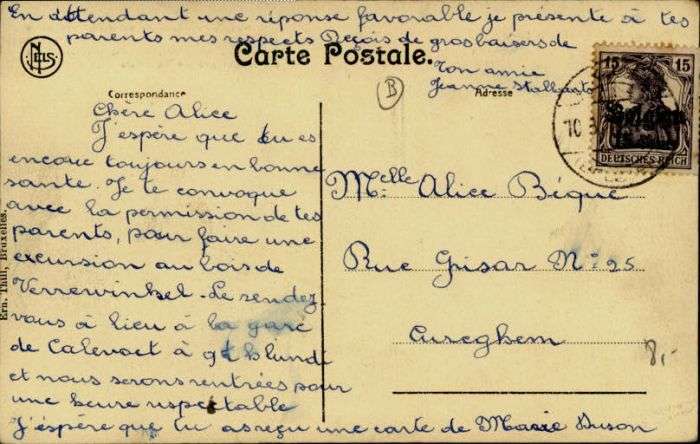 En attendant une réponse favorable je présente à tes
parents mes respects Reçois de gros baisers de
Ton amie
Jeanne
NELS
Carte Postale.
B
15 15
Belgien
DEUTSCHES REICH
10
Correspondance
Adresse
Chère Alice
J'espère que tu es
encore toujours en bonne
santé. Je te convoque
avec la permission de tes
parents, pour faire une
excursion au bois de
Verrewinkel. Le rendez
vous à lieu à la gare
de Calevoet à 9 lundi
et nous serons rentrées pour
une heure respectable
J'espère que tu as reçu une carte de Marie Duson
Melle Alice Bèque
Rue Grisar No 25
Cureghem
8,-
Ern. Thill, Bruxelles.